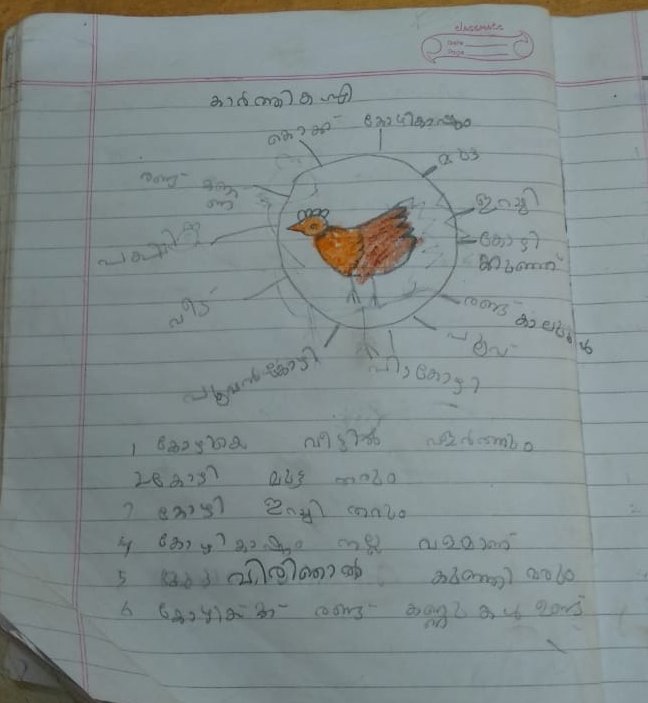 classmate
Date
Page
കാർത്തികപ്പി
കൊക്ക്
കോഴികാഷ്ഠം
മുട്ട
ഇറച്ചി
രണ്ട് കണ്ണ്
കോഴി
ക്കുഞ്ഞ്
പക്ഷി
രണ്ട് കാലുകൾ
വീട്
പൂവ്
പൂവൻകോഴി
പിടകോഴി
1 കോഴിയെ വീട്ടിൽ വളർത്തും
2 കോഴി മുട്ട തരും
3 കോഴി ഇറച്ചി തരും
4 കോഴികാഷ്ഠം നല്ല വളമാണ്
5 മുട്ട വിരിഞ്ഞാൽ കുഞ്ഞി വരും
6 കോഴിക്ക് രണ്ട് കണ്ണുകൾ ഉണ്ട്